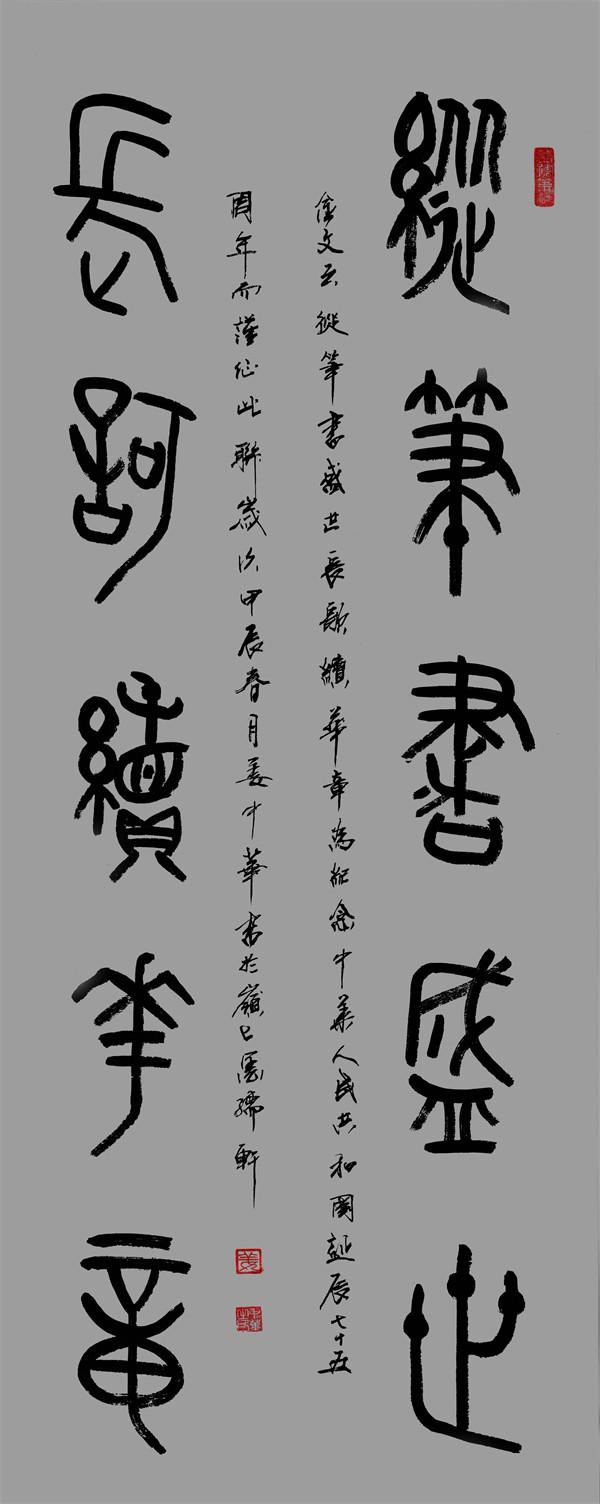 縱筆書盛世
長訶續華章
金文云縱筆書盛世長歌續華章為紀念中華人民共和國誕辰七十五
周年而謹作此聯歲次甲辰春月姜中華書於嶺上墨孺軒
姜